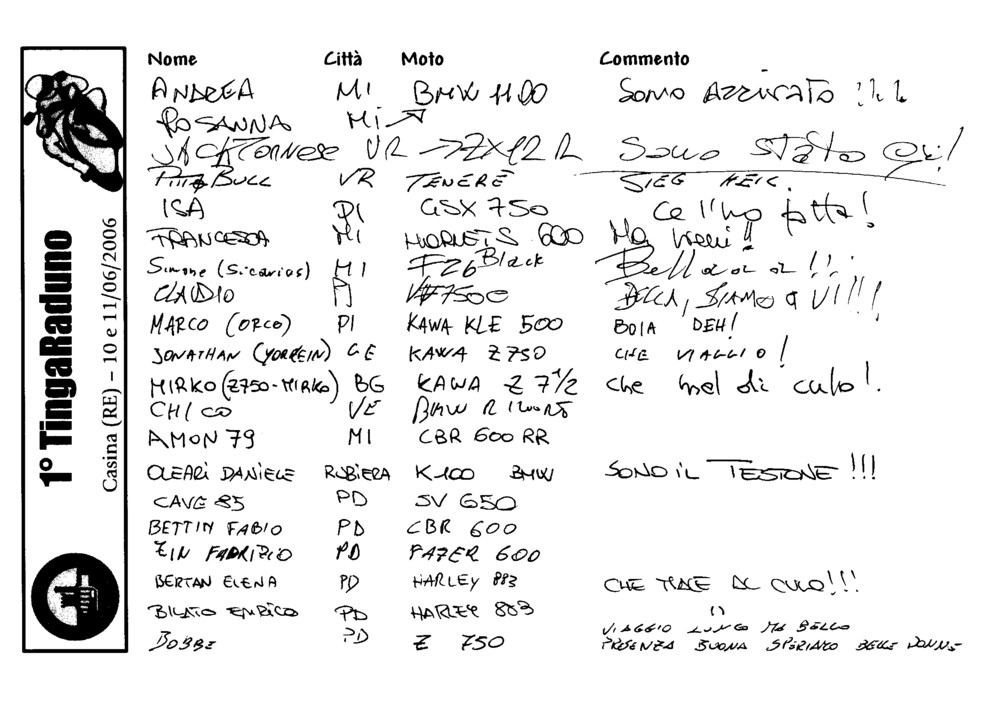 1° TingaRaduno
Casina (RE) – 10 e 11/06/2006
Nome Città Moto Commento
ANDREA MI BMW 1100 SONO ARRIVATO !!!
ROSANNA Mi
JACK TORNESE VR → ZX12R SONO STATO QUI!
BULL VR TENERÈ SIEG HEIL.
ISA PI GSX 750 Ce l'ho fatta!
FRANCESCA MI HORNET S 600 Ma !!
Simone (Sicarios) MI FZ6 Black Bellaaaa !!!
CLAUDIO PI 7500 BELLA, SIAMO QUI!!!
MARCO (ORCO) PI KAWA KLE 500 BOIA DEH!
JONATHAN GE KAWA Z750 CHE VIAGGIO!
MIRKO (Z750-MIRKO) BG KAWA Z 7 1/2 che mal di culo!
CHICO VE BMW R
AMON 79 MI CBR 600 RR
OLEARI DANIELE RUBIERA K100 BMW SONO IL TESTONE!!!
CAVE 85 PD SV 650
BETTIN FABIO PD CBR 600
ZIN FABRIZIO PD FAZER 600
BERTAN ELENA PD HARLEY 883 CHE MALE AL CULO!!!
BILATO ENRICO PD HARLEY 883 "
BOBBE PD Z 750 VIAGGIO LUNGO MA BELLO
PRESENZA BUONA SPERIAMO BELLE DONNE